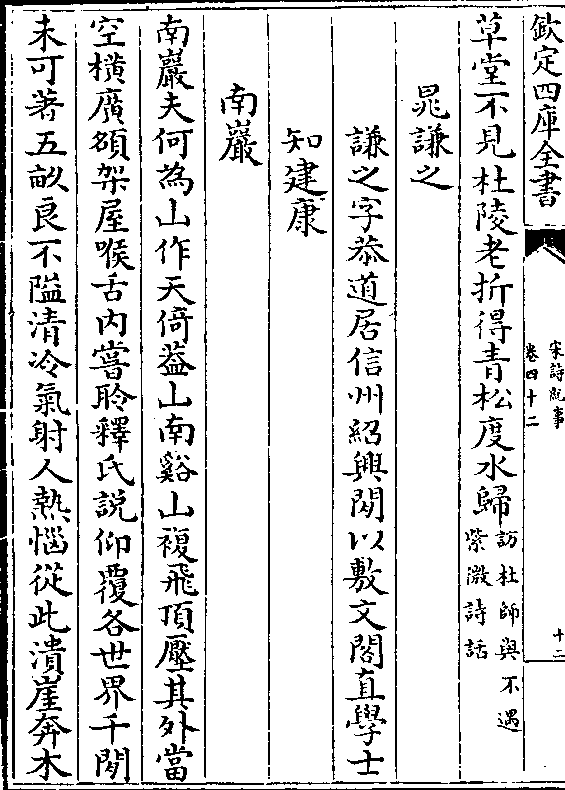 欽定四庫全書
宋詩紀事
卷四十二
十二
草堂不見杜陵老折得青松度水歸訪杜師與不遇
紫微詩話
晁謙之
謙之字恭道居信州紹興間以敷文閣直學士
知建康
南巖
南巖夫何為山作天倚蓋山南谿山複飛頂壓其外當
空橫廣頟架屋喉舌内嘗聆釋氏説仰覆各世界千閒
未可著五畝良不隘清冷氣射人熱惱從此潰崖奔木